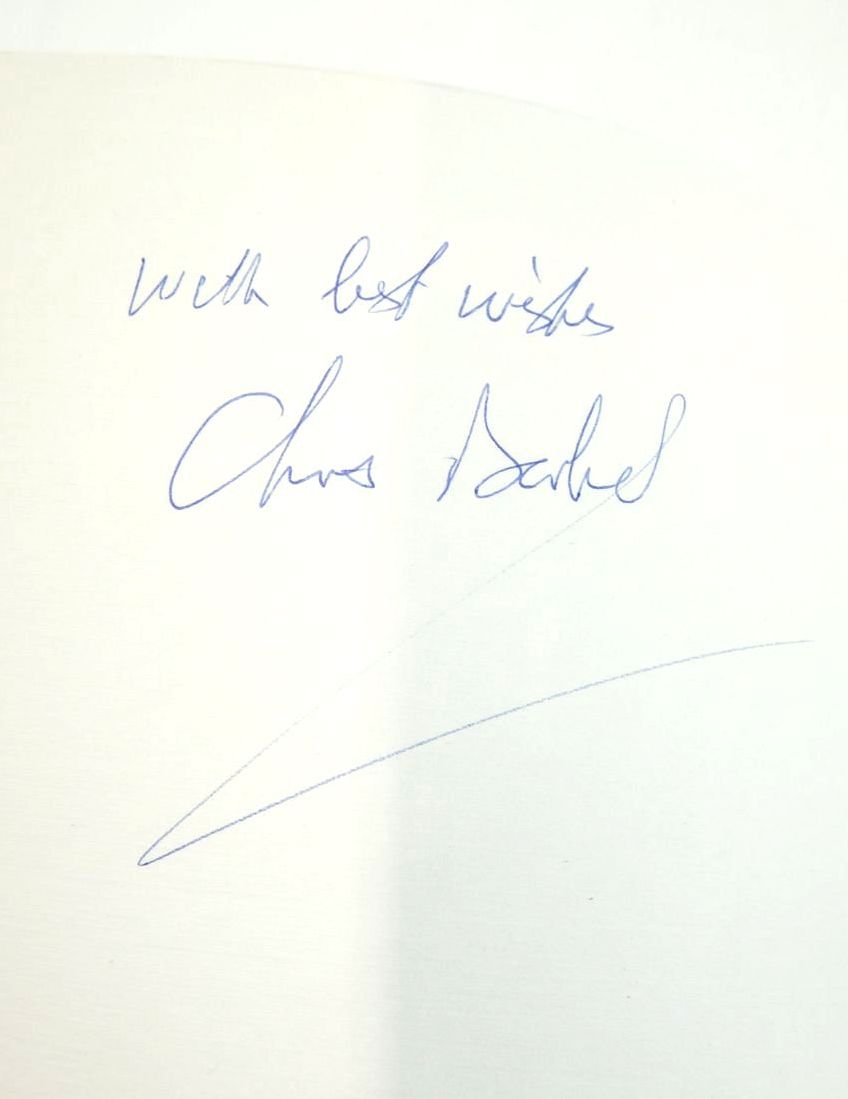 with best wishes
Chris